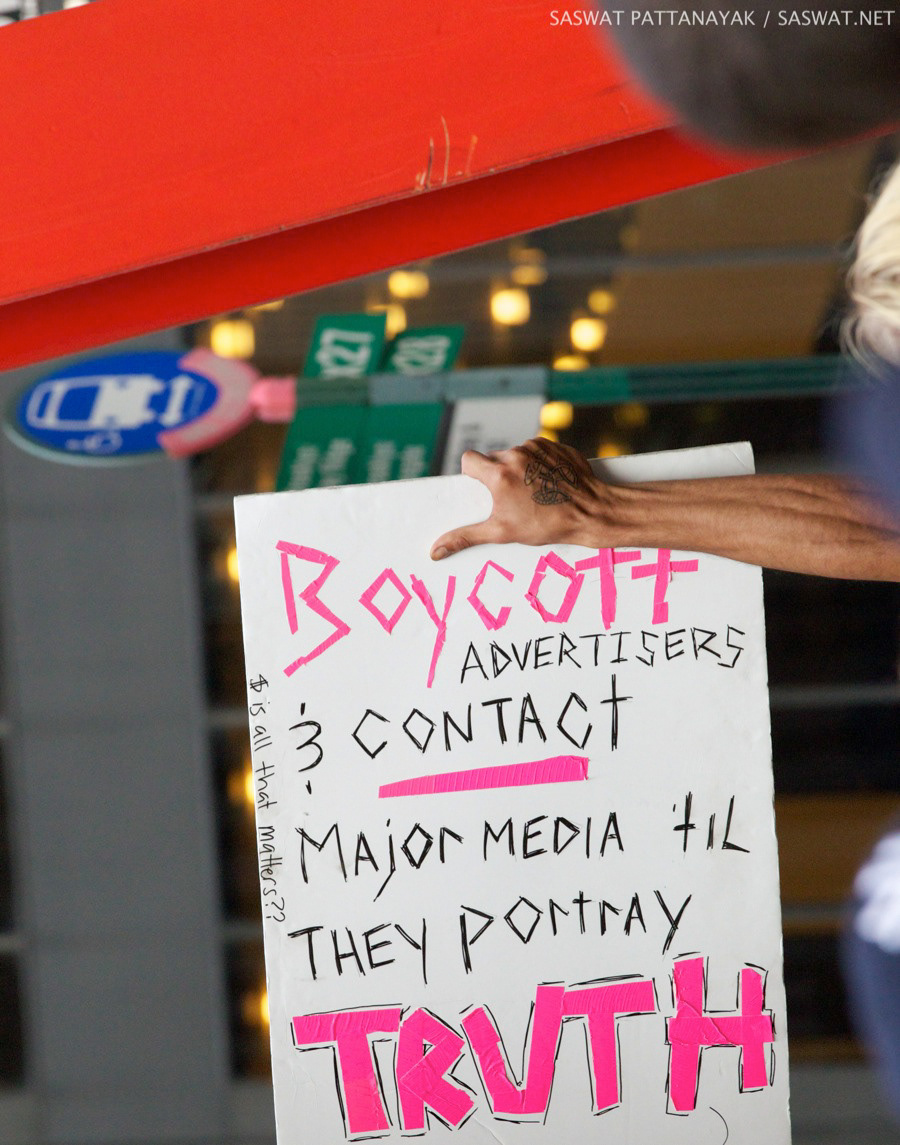 SASWAT PATTANAYAK / SASWAT.NET
x27
x28
Boycott
ADVERTISERS
& CONTACT
MAjor MEDIA 'til
THEY PortrAY
TRUTH
$ is all that matters??